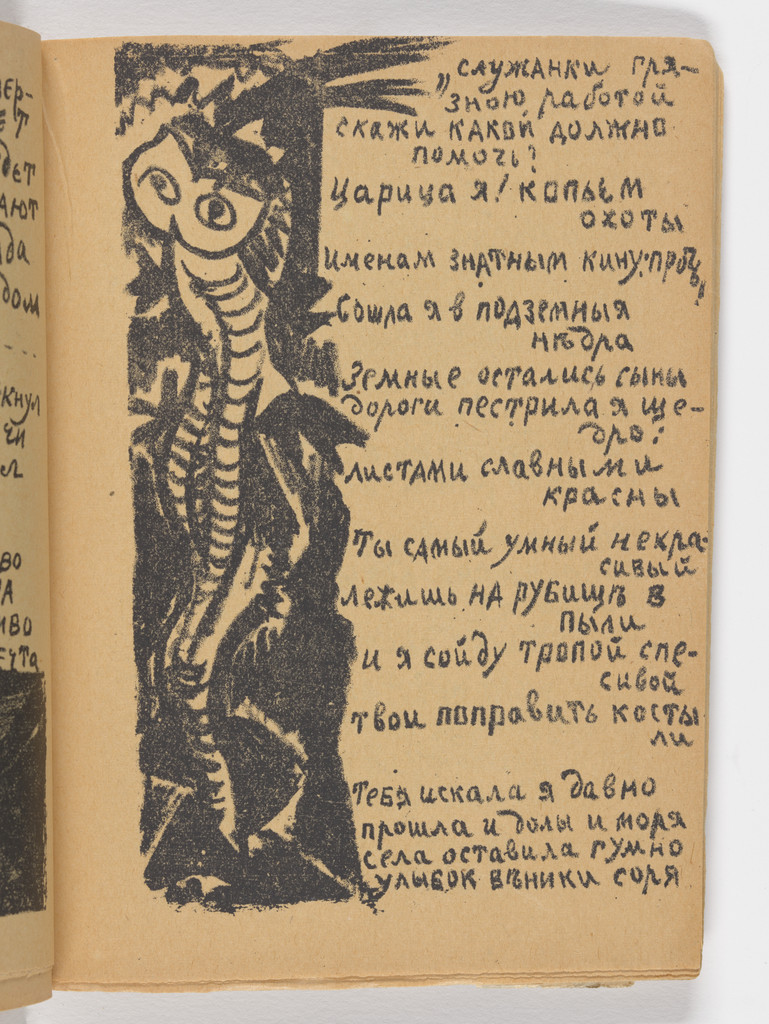 „служанки гря-
зною работой
скажи какой должно
помочь?
Царица я! копьем
охоты
именам знатным кину:прочь"
Сошла я в подземныя
нѣдра
Земные остались сыны
дороги пестрила я ще-
дро:
листами славными
красны
Ты самый умный некра-
сивый
лежишь на рубищѣ в
пыли
и я сойду тропой спе-
сивой
твои поправить косты
ли
Тебя искала я давно
прошла и долы и моря
села оставила гумно
улыбок вѣники соря
ер-
ает
ают
да
дом
кнул
чи
во
на
иво
ечта